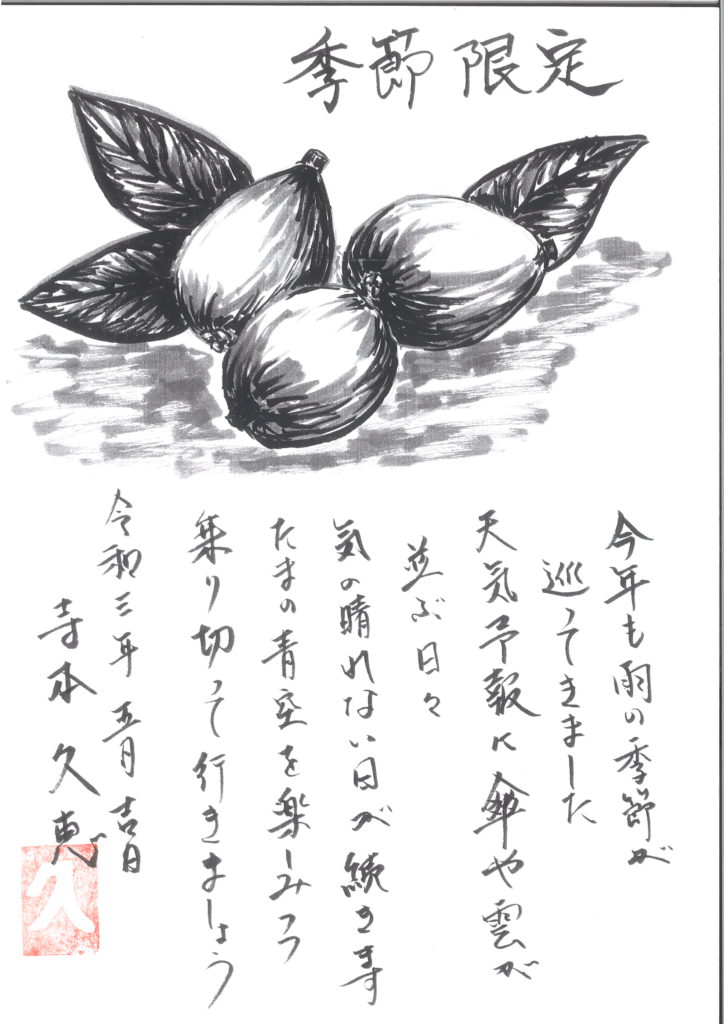 季節限定
今年も雨の季節が
巡ってきました
天気予報に傘や雲が
並ぶ日々
気の晴れない日が続きます
たまの青空を楽しみつつ
乗り切って行きましょう
令和三年五月吉日
寺本久恵
久